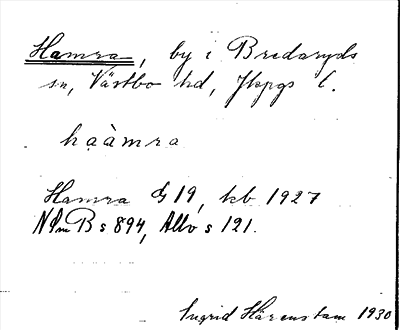 Hamra, by i Bredaryds
sn, Västbo hd, Jkpgs l.
haàmra
Hamra G 19, kb 1927
B s 894, s 121.
Ingrid Härenstam 1930